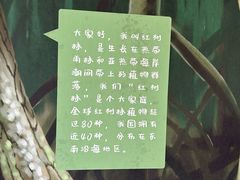 大家好，我叫红树
林，是生长在热带
雨林和亚热带海岸
潮间带上的植物群
落，我们“红树
林”是个大家庭，
全球红树林植物超
过80种，我国拥有
近40种，分布在东
南沿海地区。